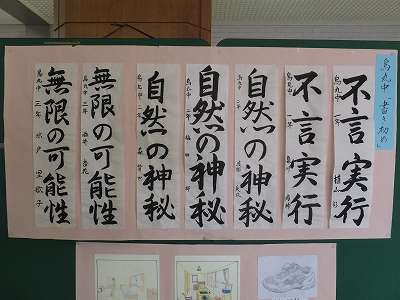 烏丸中 書き初め
不言実行
烏丸中 一年
不言実行
烏丸中 一年
自然の神秘
烏丸中 二年
自然の神秘
烏丸中 二年
自然の神秘
烏丸中 二年
無限の可能性
烏丸中 三年
無限の可能性
烏丸中 三年 水戸 里歌子